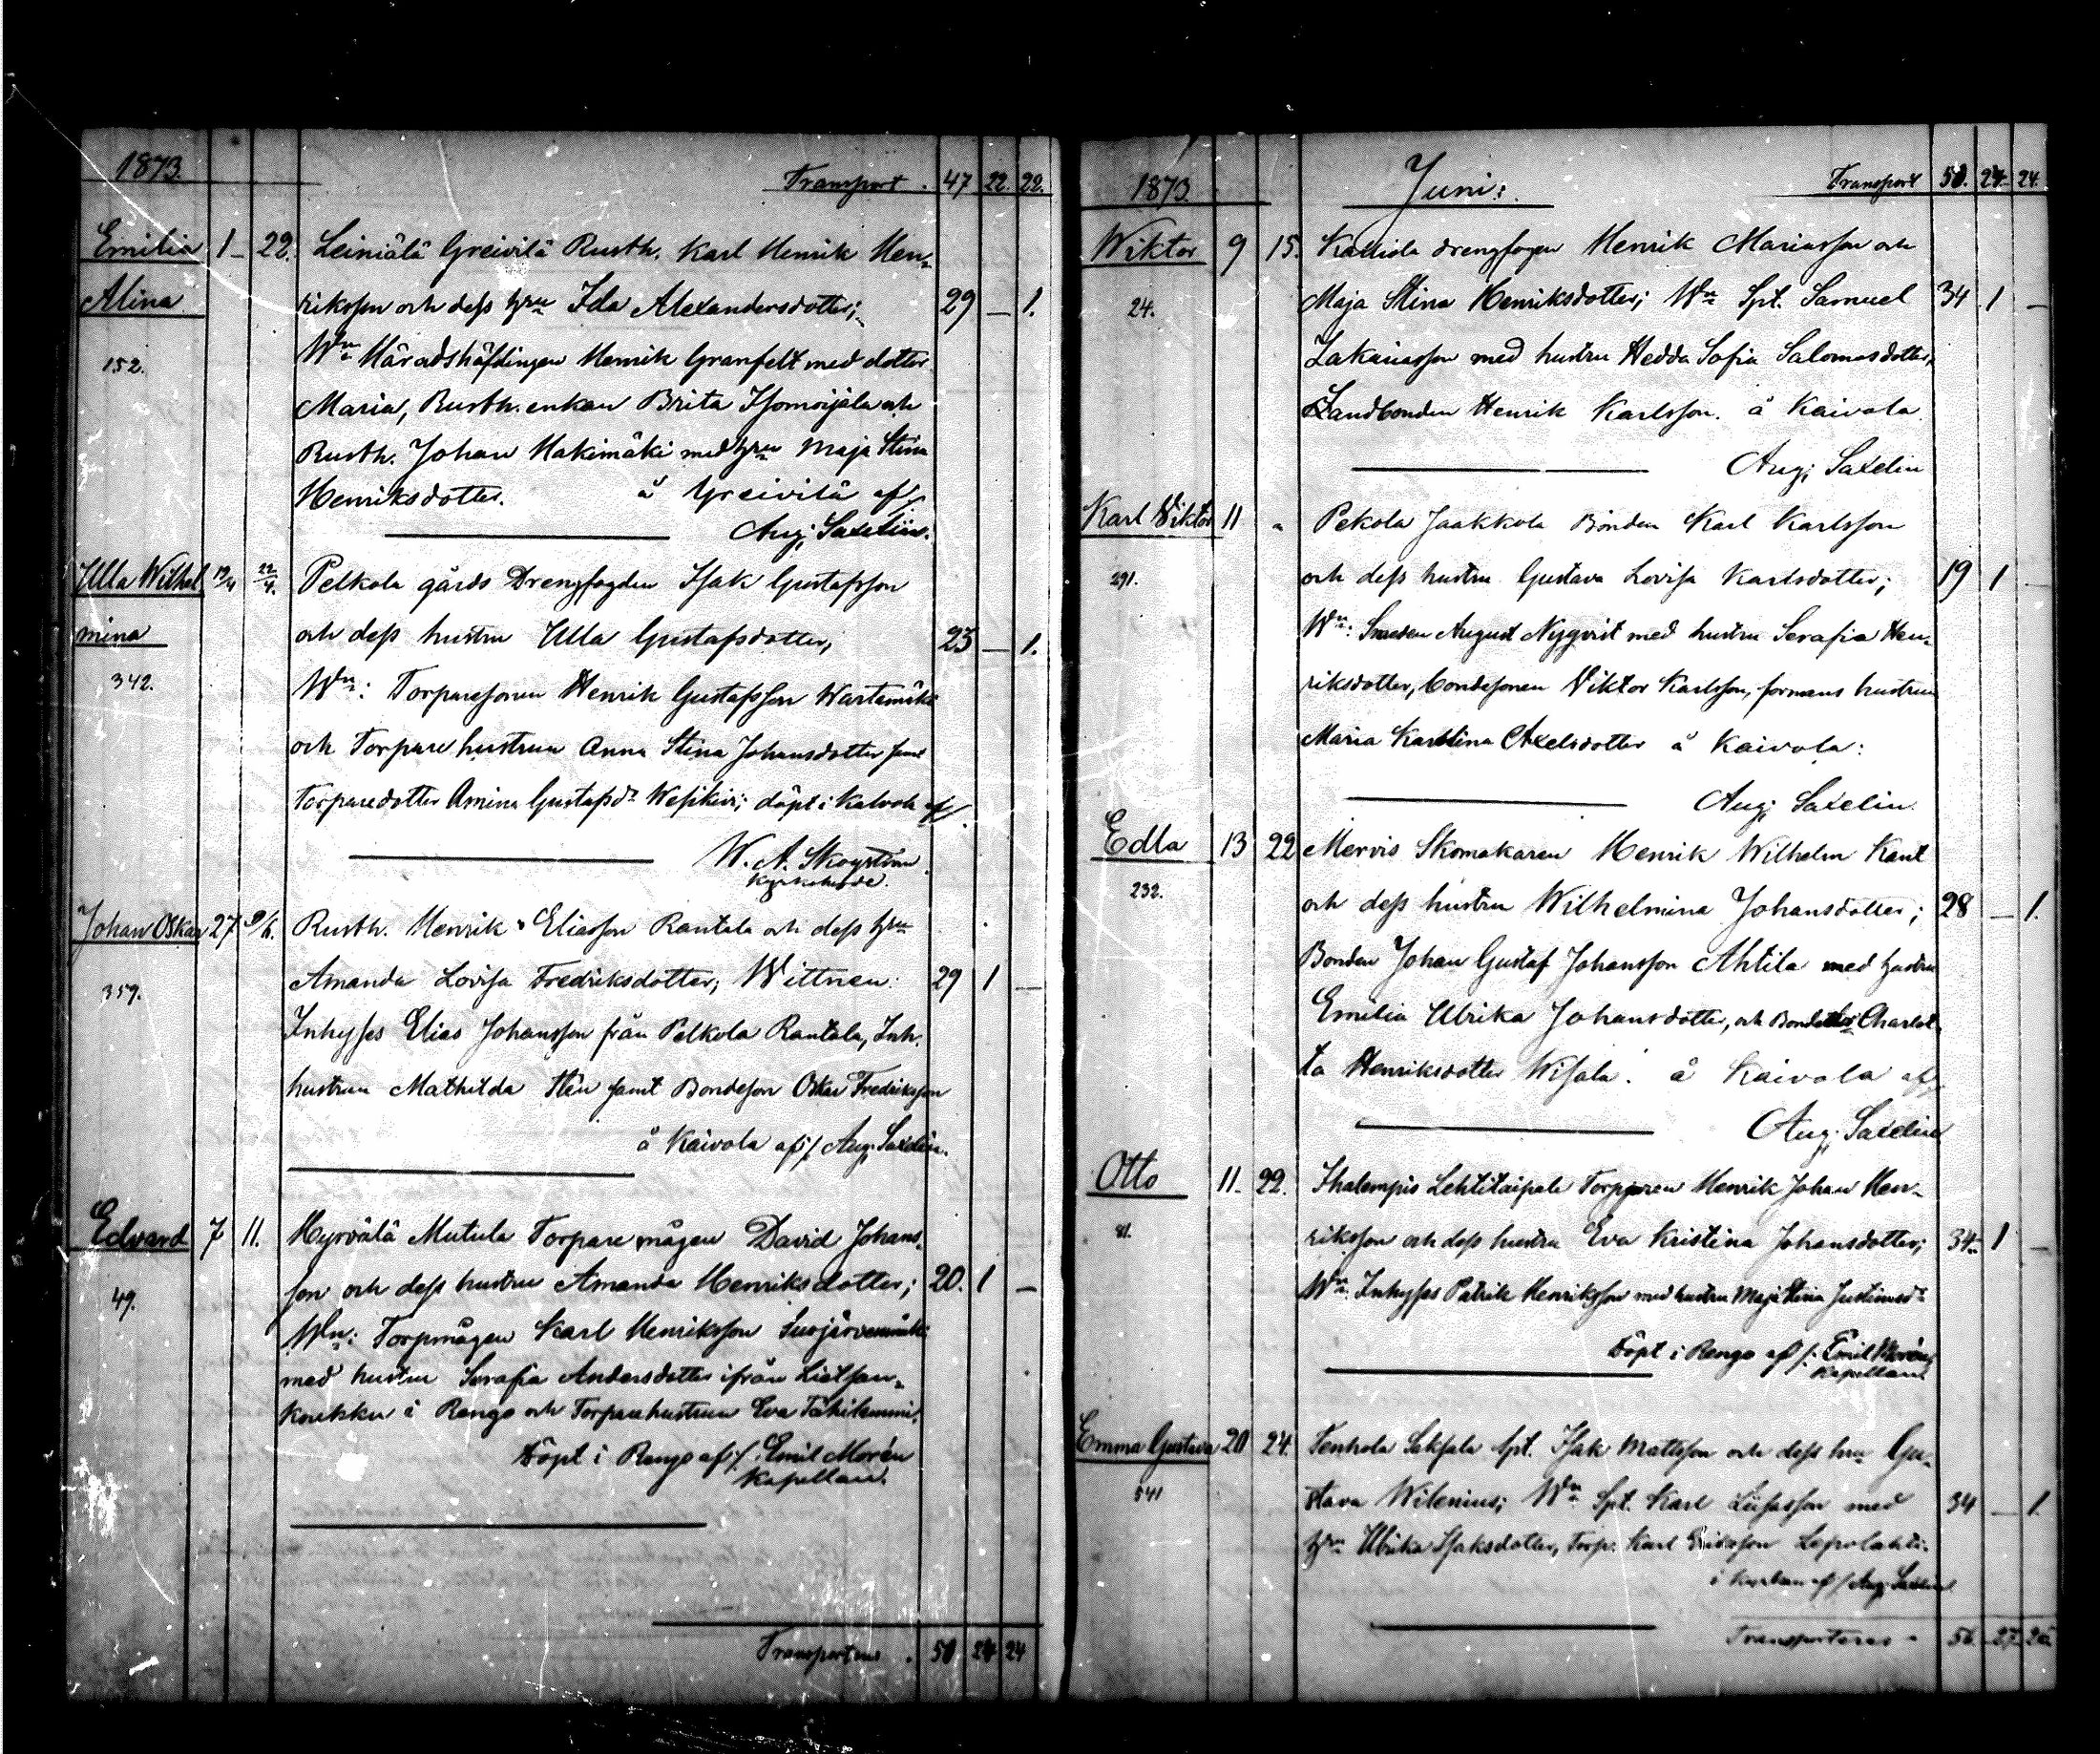 1873.
Transport . 47 22. 22.
Emilia 1 – 22. Leiniälä Greivilä Rusth. Karl Henrik Hen-
Alina riksson och dess hru Ida Alexandersdotter; 29 – 1.
152. Wn Häradshöfdingen Henrik Granfelt med dotter
Maria, Rusth. enkan Brita Isomoijala och
Rusth. Johan Hakimäki med hru Maja Stina
Henriksdotter. å Greivilä af
Aug. Saxelin.
Ulla Wilhel 19/4 22/4. Pelkola gårds Drengfogden Isak Gustafsson
mina och dess hustru Ulla Gustafsdotter, 23 – 1.
342. Wn: Torparesonen Henrik Gustafsson Wartamäki
och Torpare hustrun Anna Stina Johansdotter samt
Torparedotter Amina Gustafsdr Wesikivi; döpt i Kalvola af
W. A. Skogström
Kyrkoherde.
Johan Oskar 27 9/6. Rusth. Henrik Eliasson Rantala och dess hru
Amanda Lovisa Fredriksdotter; Wittnen: 29 1 –
359. Inhyses Elias Johansson från Pelkola Rantala, Inh.
hustrun Mathilda Sten samt Bondeson Oskar Fredriksson
å Kaivola af /. Aug. Saxelin.
Edvard 7 11. Hyrvälä Mutula Torpare mågen David Johans-
son och dess hustru Amanda Henriksdotter; 20. 1 –
49. Wn: Torpmågen Karl Henriksson Suojärvenmäki
med hustru Serafia Andersdotter ifrån Lietsan-
koukku i Rengo och Torparehustrun Eva Tähilammi.
Döpt i Rengo af /. Emil Morén
Kapellan.
Transporteras . 50 24 24
1873. Juni: Transport 50. 24. 24.
Wiktor 9 15. Kalliola drengfogen Henrik Mariasson och
24. Maja Stina Henriksdotter; Wn Spt. Samuel 34 1 –
Zakariasson med hustru Hedda Sofia Salomosdotter,
Landbonden Henrik Karlsson. å Kaivola
Aug. Saxelin
Karl Viktor 11 " Pekola Jaakkola Bonden Karl Karlsson
291. och dess hustru Gustava Lovisa Karlsdotter; 19 1 –
Wn: Smeden August Nygvist med hustru Serafia Hen-
riksdotter, bondesonen Viktor Karlsson, formans hustrun
Maria Karolina Axelsdotter å Kaivola:
Aug. Saxelin.
Edla 13 22 Mervis Skomakaren Henrik Wilhelm Kant
232. och dess hustru Wilhelmina Johansdotter; 28 – 1.
Bonden Johan Gustaf Johansson Ahtila med hustru
Emilia Ulrika Johansdotter, och Bondedotter Charlot-
ta Henriksdotter Wisala. å Kaivola af
Aug. Saxelin
Otto 11. 22. Ihalempis Lehtitaipale Torparen Henrik Johan Hen-
81. riksson och dess hustru Eva Kristina Johansdotter; 34 1 –
Wn. Inhyses Patrik Henriksson med hustru Maja Stina Justinusdr
Döpt i Rengo af /. Emil Morén
Kapellan.
Emma Gustava 20 24. Tenhola Saksala Spt. Isak Mattsson och dess hru Gu-
541 stava Wilenius; Wn Spt. Karl Liisasson med 34 – 1.
hru Ulrika Isaksdotter, Torp. Karl Eriksson Lepolahti.
af / Aug. Saxelin
Transporteras 56 27 26